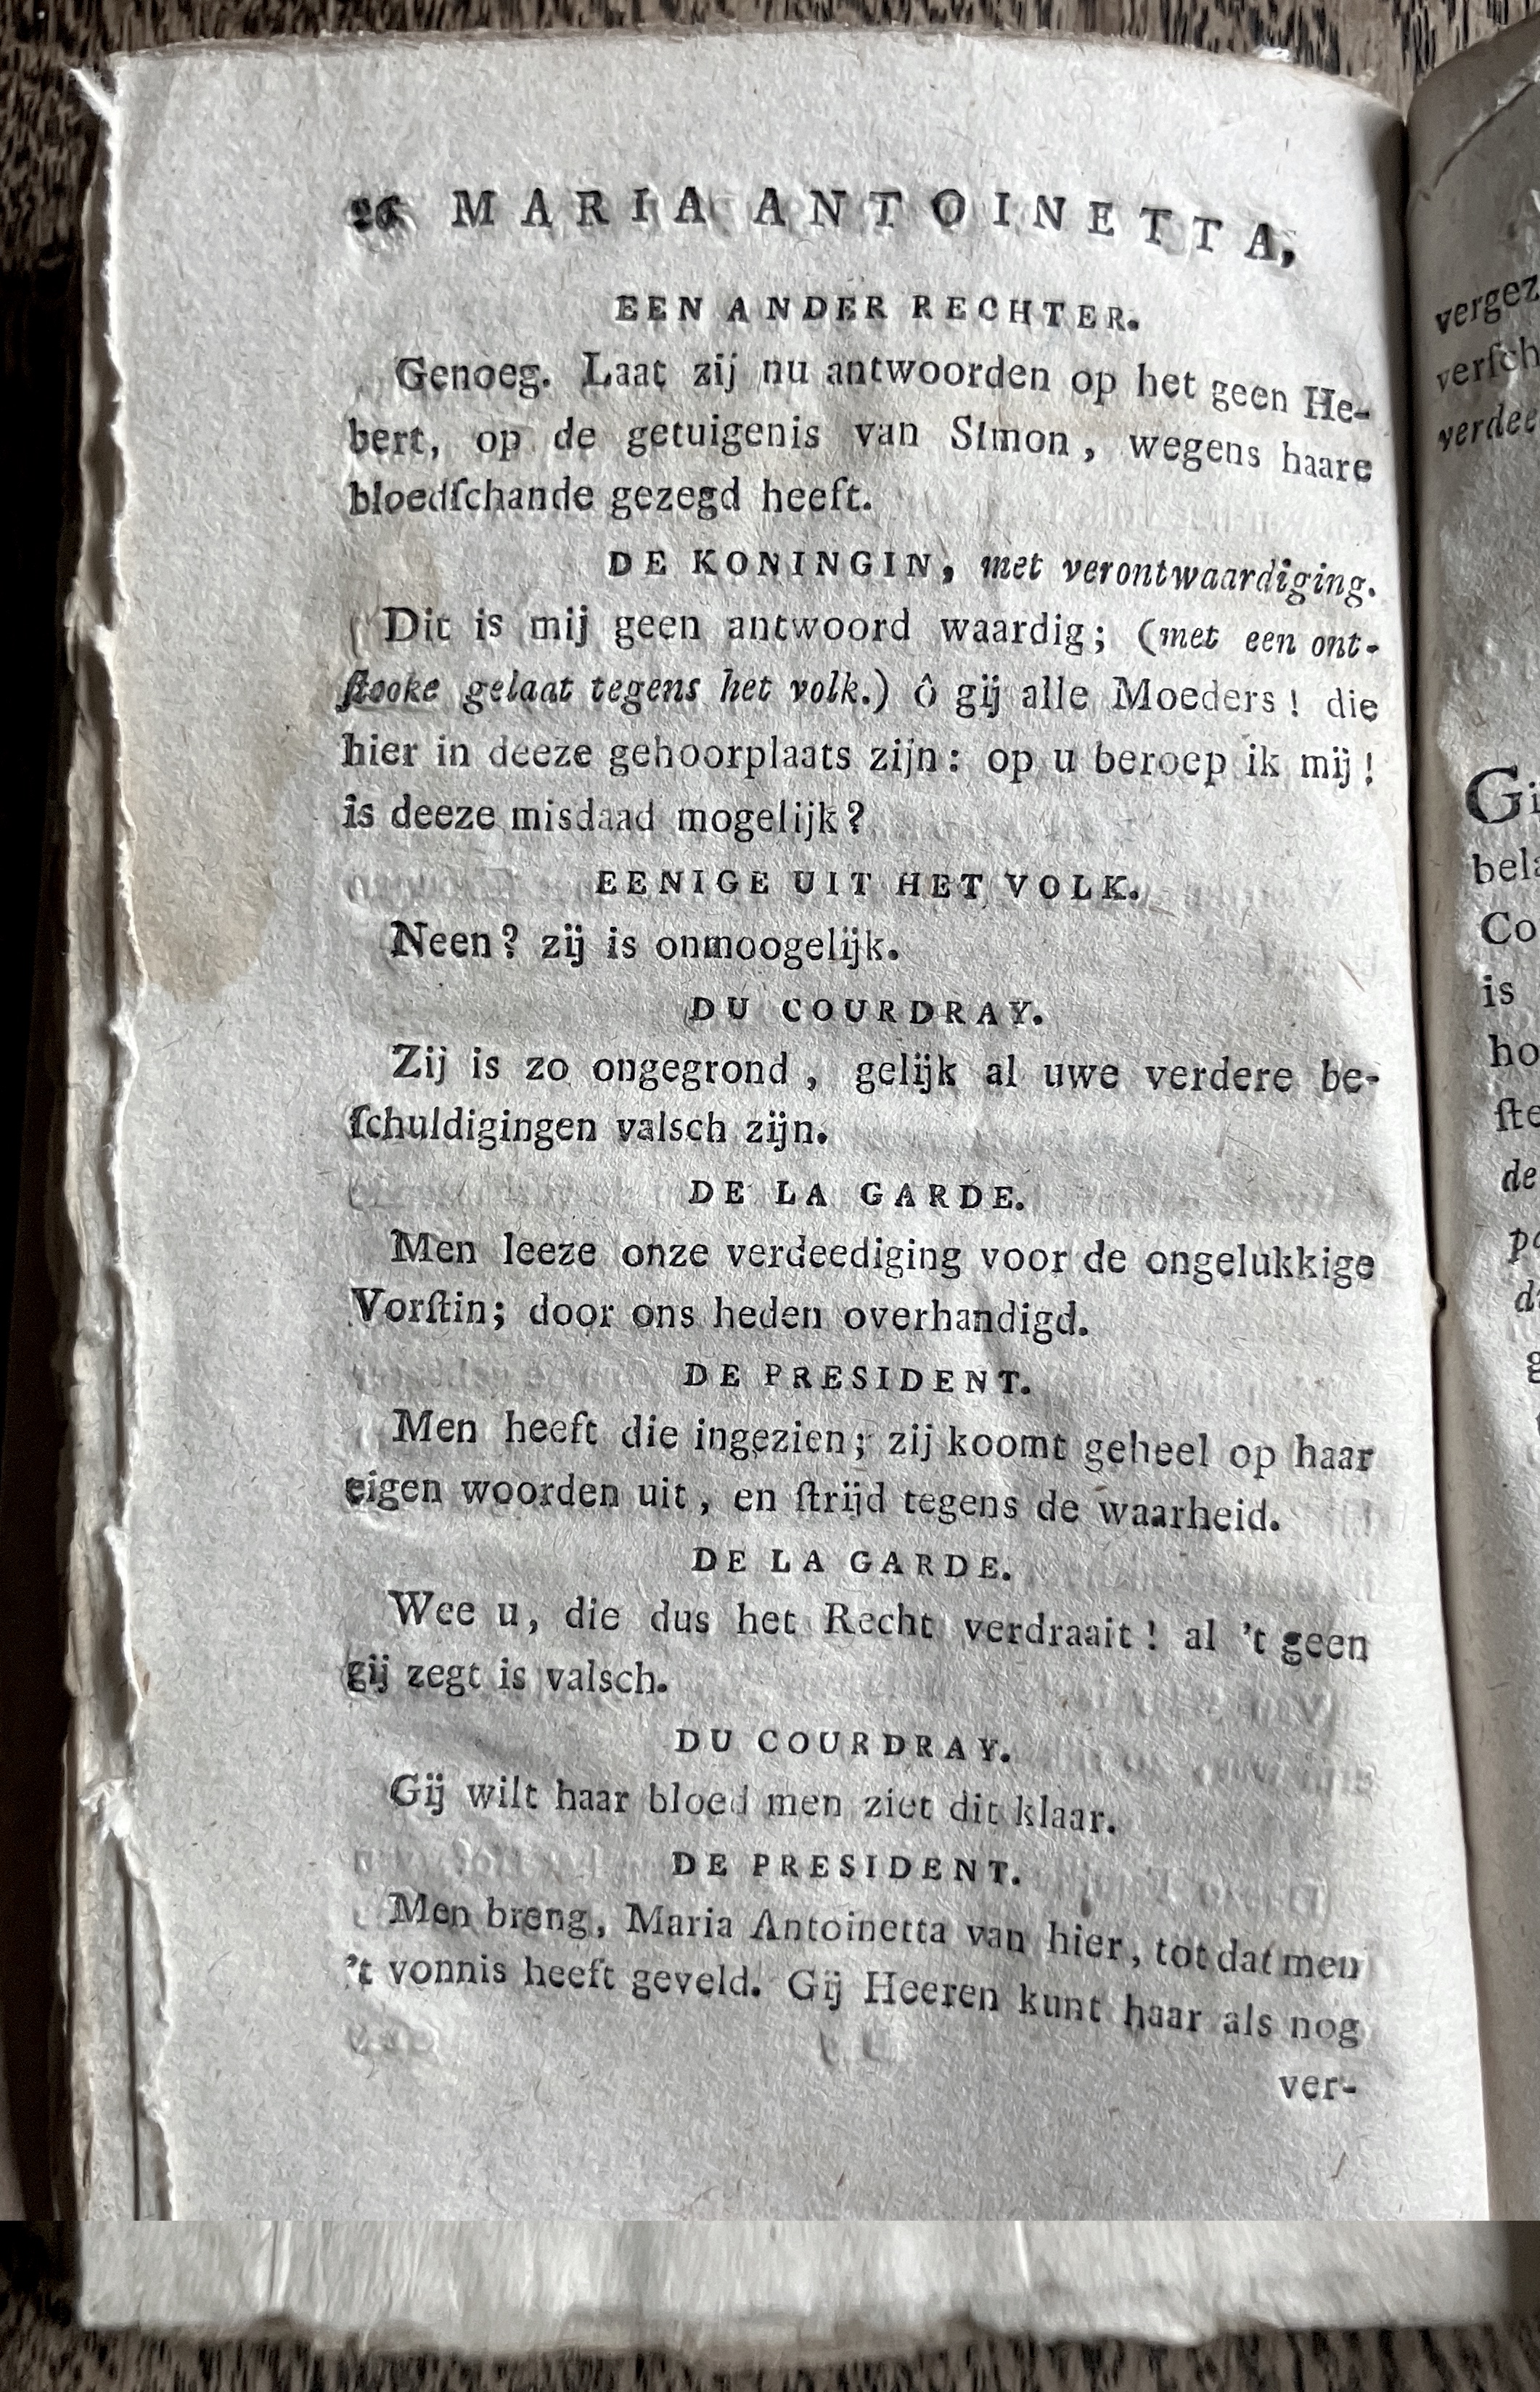 26 MARIA ANTOINETTA,
EEN ANDER RECHTER.
Genoeg. Laat zij nu antwoorden op het geen He-
bert, op de getuigenis van Simon, wegens haare
bloedſchande gezegd heeft.
DE KONINGIN, met verontwaardiging.
Dit is mij geen antwoord waardig; (met een ont-
ſtooke gelaat tegens het volk.) ô gij alle Moeders! die
hier in deeze gehoorplaats zijn: op u beroep ik mij!
is deeze misdaad mogelijk?
EENIGE UIT HET VOLK.
Neen? zij is onmoogelijk.
DU COURDRAY.
Zij is zo ongegrond, gelijk al uwe verdere be-
ſchuldigingen valsch zijn.
DE LA GARDE.
Men leeze onze verdeediging voor de ongelukkige
Vorſtin; door ons heden overhandigd.
DE PRESIDENT.
Men heeft die ingezien; zij koomt geheel op haar
eigen woorden uit, en ſtrijd tegens de waarheid.
DE LA GARDE.
Wee u, die dus het Recht verdraait! al 't geen
gij zegt is valsch.
DU COURDRAY.
Gij wilt haar bloed men ziet dit klaar.
DE PRESIDENT.
Men breng, Maria Antoinetta van hier, tot dat men
't vonnis heeft geveld. Gij Heeren kunt haar als nog
ver-
vergez
verſch
verdee
Gi
bela
Co
is
ho
ſte
de